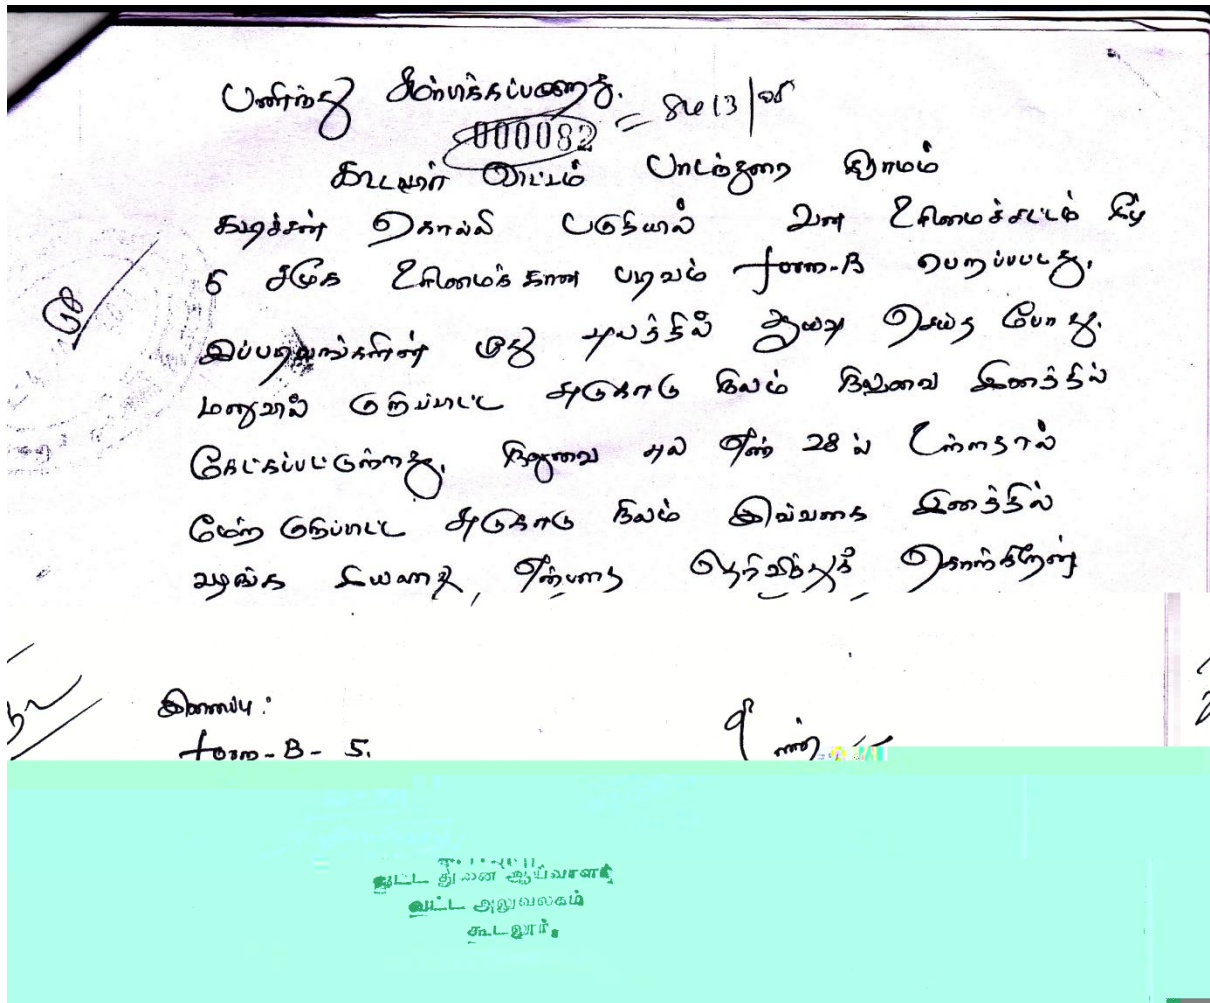 பணிந்து சமர்பிக்கப்படுகிறது.
000082 = 8413/08
கூடலூர் வட்டம் பாடந்துரை கிராமம்
கொல்லி பகுதியில் வன உரிமைச்சட்டம் கீழ்
5 சமூக உரிமைக்கான படிவம் form-B பெறப்பட்டது.
இப்படிவங்களின் மீது புலத்தில் ஆய்வு செய்த போது.
மனுவில் குறிப்பிட்ட சுடுகாடு நிலம் நிலுவை இனத்தில்
கேட்கப்பட்டுள்ளது. நிலுவை புல எண் 28 ல் உள்ளதால்
மேற்குறிப்பிட்ட சுடுகாடு நிலம் இவ்வகை இனத்தில்
வழங்க இயலாது என்பதை தெரிவித்துக் கொள்கிறேன்
இணைப்பு:
form-B-5.
வட்ட துணை ஆய்வாளர்
வட்ட அலுவலகம்
கூடலூர்.